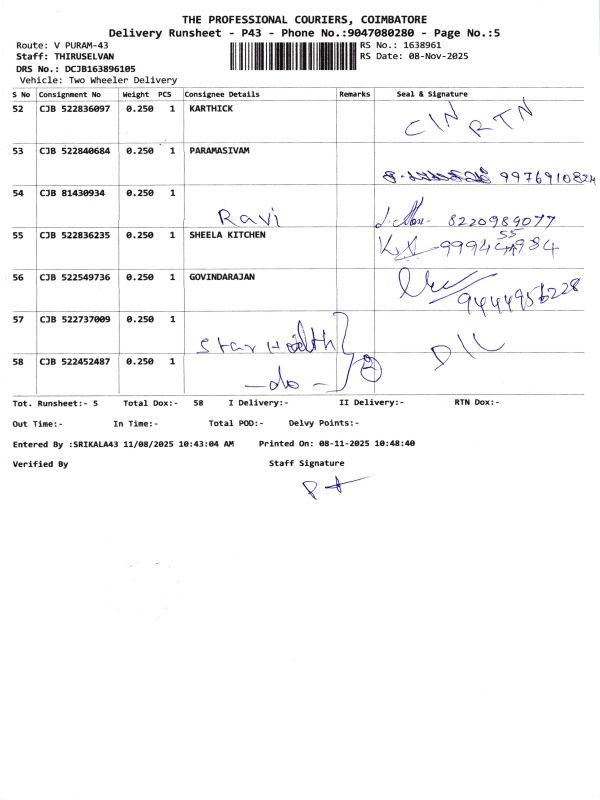 THE PROFESSIONAL COURIERS, COIMBATORE
Delivery Runsheet - P43 - Phone No.:9047080280 - Page No.:5
Route: V PURAM-43 RS No.: 1638961
Staff: THIRUSELVAN RS Date: 08-Nov-2025
DRS No.: DCJB163896105
Vehicle: Two Wheeler Delivery
S No Consignment No Weight PCS Consignee Details Remarks Seal & Signature
52 CJB 522836097 0.250 1 KARTHICK
CIN RTN
53 CJB 522840684 0.250 1 PARAMASIVAM
9976910824
54 CJB 81430934 0.250 1
Ravi 8220989077
55 CJB 522836235 0.250 1 SHEELA KITCHEN
56 CJB 522549736 0.250 1 GOVINDARAJAN
9444956228
57 CJB 522737009 0.250 1
Star Health D/L
58 CJB 522452487 0.250 1
-do- 2
Tot. Runsheet:- 5 Total Dox:- 58 I Delivery:- II Delivery:- RTN Dox:-
Out Time:- In Time:- Total POD:- Delvy Points:-
Entered By :SRIKALA43 11/08/2025 10:43:04 AM Printed On: 08-11-2025 10:48:40
Verified By Staff Signature